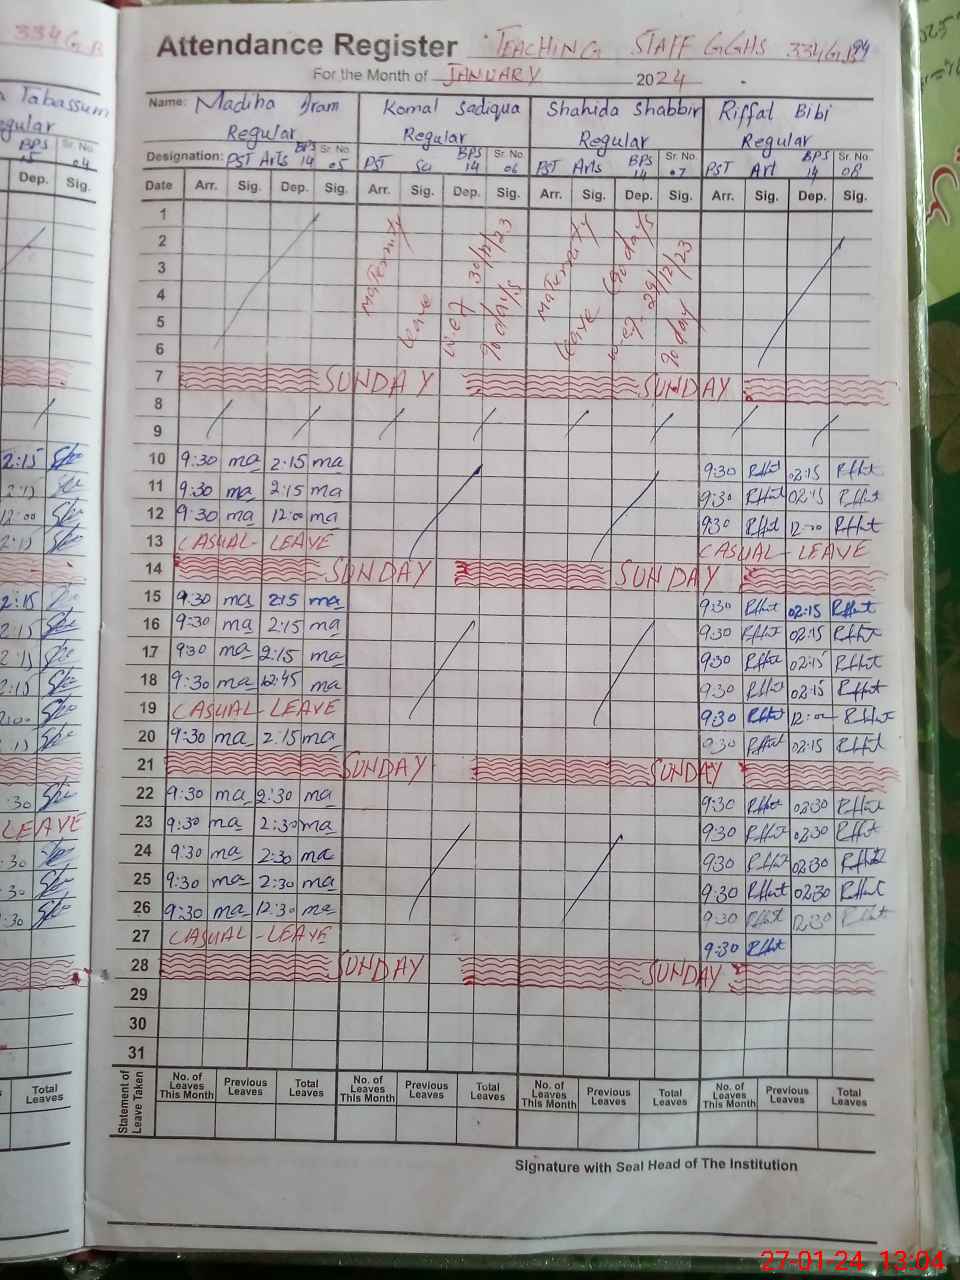 334G.B
Tabassum
Regular
BPS Sr. No.
15 04
Dep. Sig.
Attendance Register TEACHING STAFF GGHS 334G.B
For the Month of JANUARY 2024
Name: Madiha Iram Komal Sadiqua Shahida Shabbir Riffat Bibi
Regular Regular Regular Regular
Designation: PST Arts BPS 14 Sr. No. 05 PST Sci BPS 14 Sr. No. 06 PST Arts BPS 14 Sr. No. 07 PST Art BPS 14 Sr. No. 08
Date Arr. Sig. Dep. Sig. Arr. Sig. Dep. Sig. Arr. Sig. Dep. Sig. Arr. Sig. Dep. Sig.
1
2
3
4
5
6
maternity leave w.e.f 30/12/23 90 days
maternity leave (90 days w.e.f. 29/12/23 90 day
7 SUNDAY SUNDAY
8
9
10 9:30 ma 2:15 ma 9:30 Riffat 02:15 Riffat
11 9:30 ma 2:15 ma 9:30 Riffat 02:15 Riffat
12 9:30 ma 12:00 ma 9:30 Riffat 12:00 Riffat
13 CASUAL-LEAVE CASUAL-LEAVE
14 SUNDAY SUNDAY
15 9:30 ma 2:15 ma 9:30 Riffat 02:15 Riffat
16 9:30 ma 2:15 ma 9:30 Riffat 02:15 Riffat
17 9:30 ma 2:15 ma 9:30 Riffat 02:15 Riffat
18 9:30 ma 12:45 ma 9:30 Riffat 02:15 Riffat
19 CASUAL-LEAVE 9:30 Riffat 12:00 Riffat
20 9:30 ma 2:15 ma 9:30 Riffat 02:15 Riffat
21 SUNDAY SUNDAY
22 9:30 ma 2:30 ma 9:30 Riffat 02:30 Riffat
23 9:30 ma 2:30 ma 9:30 Riffat 02:30 Riffat
24 9:30 ma 2:30 ma 9:30 Riffat 02:30 Riffat
25 9:30 ma 2:30 ma 9:30 Riffat 02:30 Riffat
26 9:30 ma 12:30 ma 9:30 Riffat 12:30 Riffat
27 CASUAL-LEAVE 9:30 Riffat
28 SUNDAY SUNDAY
29
30
31
LEAVE
Total Leaves
Statement of Leave Taken
No. of Leaves This Month Previous Leaves Total Leaves No. of Leaves This Month Previous Leaves Total Leaves No. of Leaves This Month Previous Leaves Total Leaves No. of Leaves This Month Previous Leaves Total Leaves
Signature with Seal Head of The Institution
27-01-24 13:04